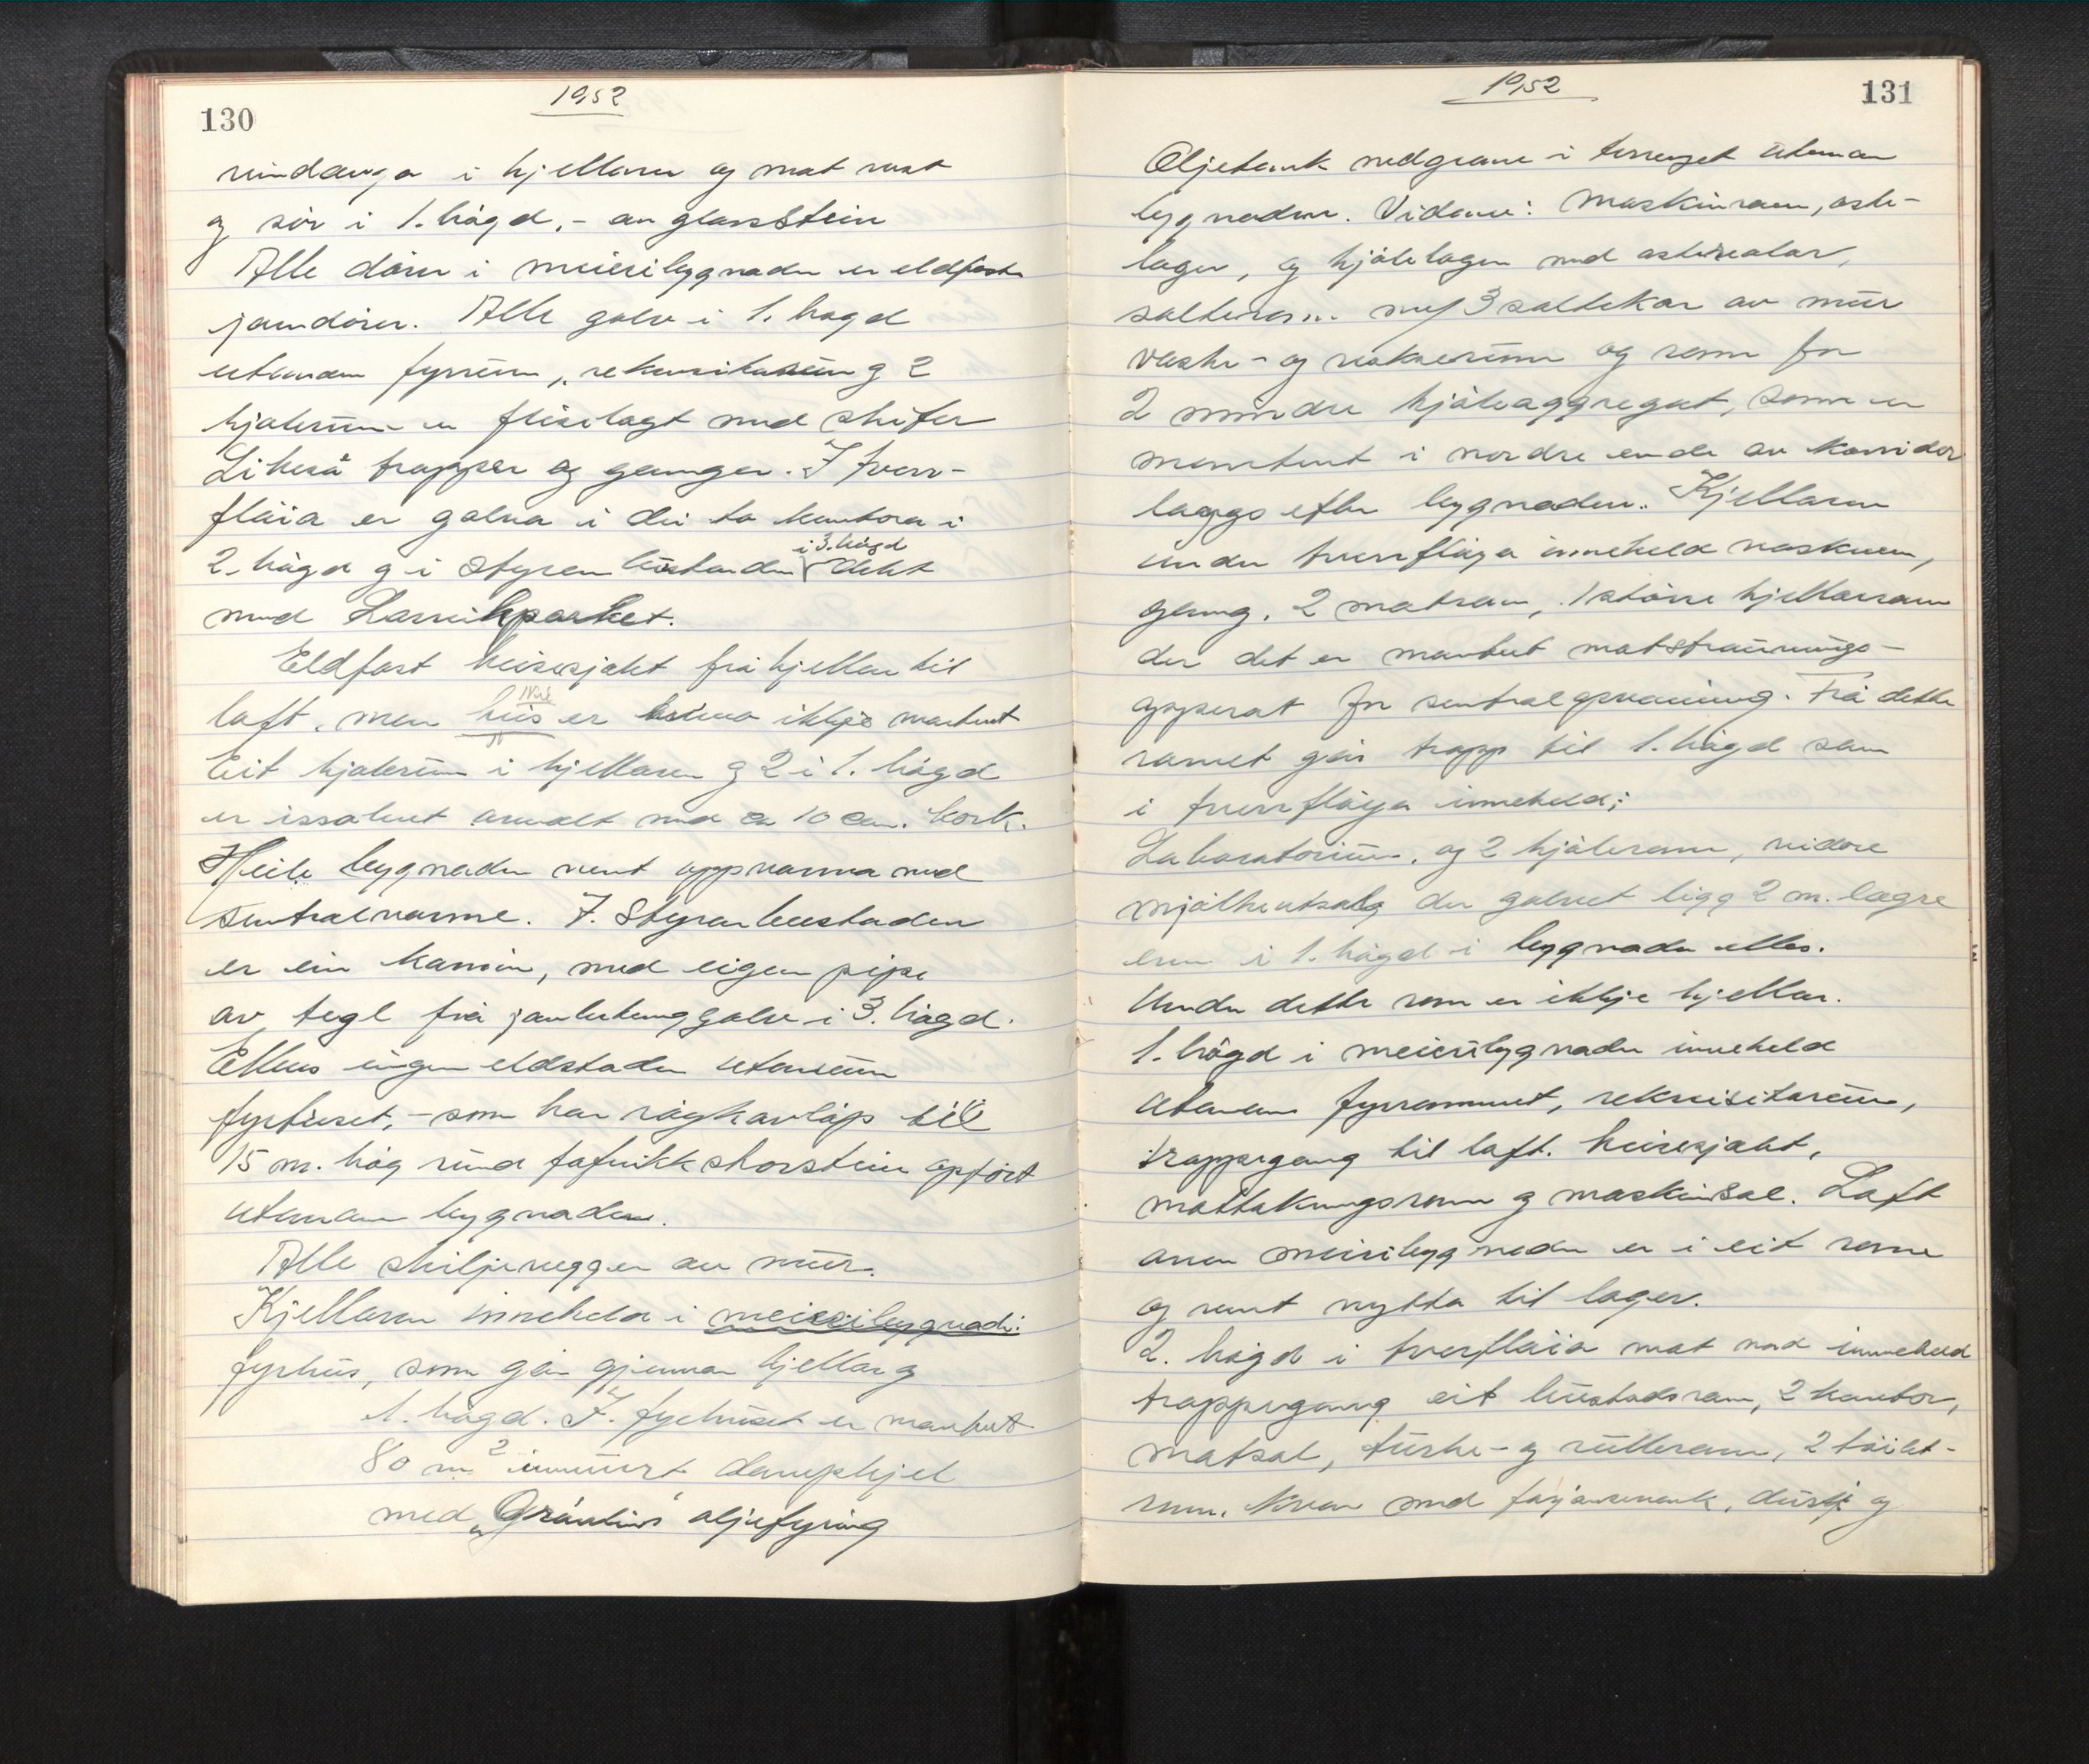 130
1952
vindauga i kjellaren og mot vest
og sør i 1. høgd, - av glasstein
Alle dører i meieribygnaden er eldfaste
jarndører. Alle golv i 1. høgd
utanom fyrrum, rekvisitarum og 2
kjølerum er fliselagt med skifer
Likeså trapper og ganger. I tverr-
fløia er golva i dei to kontora i
2. høgd og i styrarbustaden i 3. høgd dekt
med Larvikparket.
Eldfast heissjakt frå kjellar til
loft, men heis er ikkje montert
Eit kjølerum i kjellaren og 2 i 1. høgd
er issolert med ca 10 cm. kork.
Heile bygnaden vert oppvarma med
sentralvarme. I. Styrarbustaden
er ein kamin, med eigen pipe
av tegl frå jarnbetonggolv i 3. høgd.
Elles ingen eldstader utanum
fyrhuset, - som har røykavløp til
15 m. høg rund fabrikkskorstein oppført
utanom bygnaden.
Alle skiljevegger av mur.
Kjellaren inneheld i meieribygnade:
fyrhus, som går gjennom kjellar og
1. høgd. I. fyrhuset er montert
80 m² innmurt dampkjel
med oljefyring
1952
131
Oljetank nedgrave i terrenget utanom
bygnaden. Vidare: Maskinrom, oste-
lager, og kjølelager med ostereolar,
salterom m/ 3 saltekar av mur
vaske- og rom for
2 mindre kjøleaggregat, som er
montert i nordre ende av korridor
langs efter bygnaden. Kjellaren
under tverrfløya inneheld vaskerom,
gang, 2 matrom, 1 større kjellarrom
der det er montert motstraumings-
apparat for sentraloppvarming. Frå dette
romet går trapp til 1. høgd som
i tverrfløya inneheld;
Laboratorium, og 2 kjølerom, vidare
mjølkeutsalg der golvet ligg 2 m. lægre
enn i 1. høgd i bygnaden elles.
Under dette rom er ikkje kjellar.
1. høgd i meieribygnaden inneheld
utanom fyrrommet, rekvisitarum,
trappegang til loft. heissjakt,
mottakingsrom og maskinsal. Loft
over meieribygnaden er i eit rom
og vert nytta til lager.
2. høgd i tverfløia mot nord inneheld
trappegang eit bustadsrom, 2 kontor,
matsal, turke- og rullerom, 2 toilet-
rom. kvar med dusj og